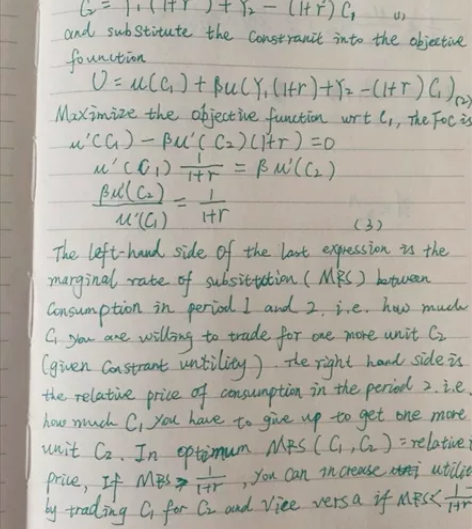 C₂ = Y₁(1+r) + Y₂ - (1+r)C₁ (1)
and substitute the constranit into the objective
founction
U = u(C₁) + βu(Y₁(1+r)+Y₂-(1+r)C₁) (2)
Maximize the objective function wrt C₁, the FOC is
u'(C₁) - βu'(C₂)(1+r) = 0
u'(C₁) 1/(1+r) = βu'(C₂)
βu'(C₂)/u'(C₁) = 1/(1+r) (3)
The left-hand side of the last expression is the
marginal rate of subsittution (MRS) between
Consumption in period 1 and 2. i.e. how much
C₁ you are willing to trade for one more unit C₂
(given constrant untility). The right hand side is
the relative price of consumption in the period 2. i.e.
how much C₁ you have to give up to get one more
unit C₂. In optimum MRS(C₁,C₂) = relative
price, If MRS > 1/(1+r), you can increase utilit
by trading C₁ for C₂ and vice versa if MRS < 1/(1+r)